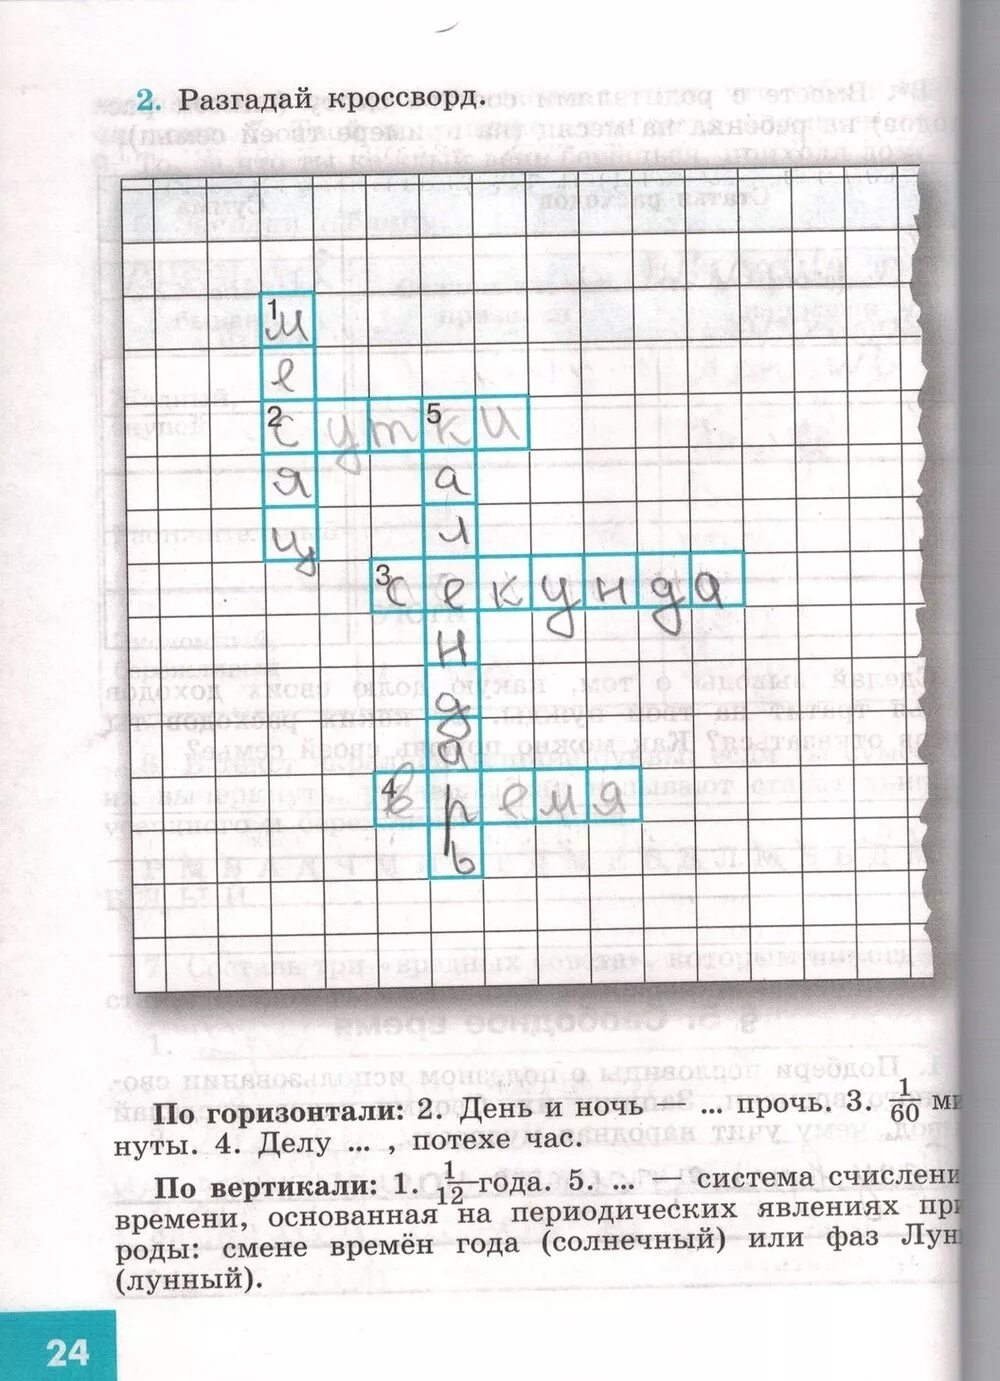 2. Разгадай кроссворд.
1
м
е
2 5
сутки
я а
ц л
3
секунда
н
д
а
4
время
ь
По горизонтали: 2. День и ночь — ... прочь. 3. 1/60 ми
нуты. 4. Делу ... , потехе час.
По вертикали: 1. 1/12 года. 5. ... — система счислени
времени, основанная на периодических явлениях при
роды: смене времён года (солнечный) или фаз Лун
(лунный).
24